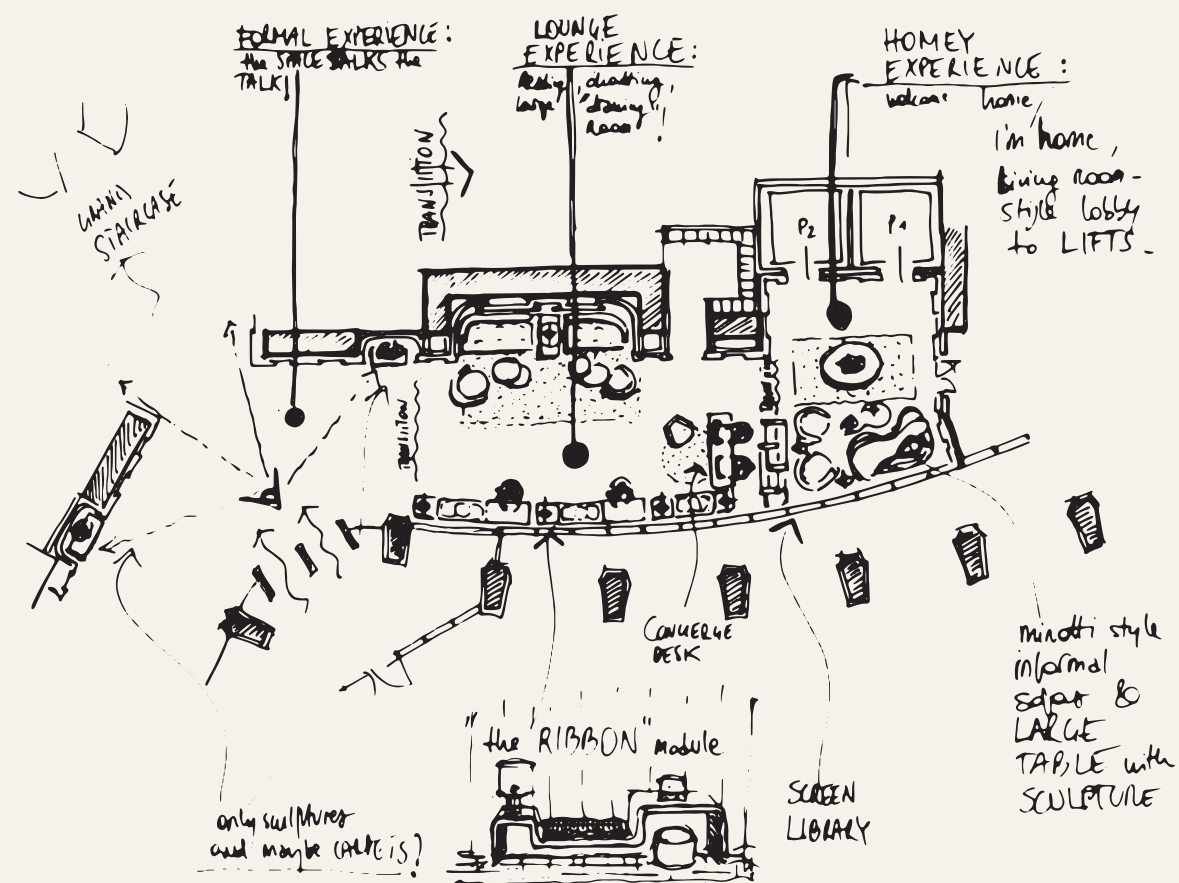 FORMAL EXPERIENCE:
the SPACE TALKS the
TALK!
LOUNGE
EXPERIENCE:
chatting,
large "drawing"
Room!
HOMEY
EXPERIENCE:
welcome home,
i'm home,
living room-
style lobby
to LIFTS.
TRANSITION
GRAND
STAIRCASE
P2
P1
TRANSITION
CONCIERGE
DESK
"the "RIBBON" module
SCREEN
LIBRARY
minotti style
informal
sofas &
LARGE
TABLE with
SCULPTURE
only sculptures
and maybe